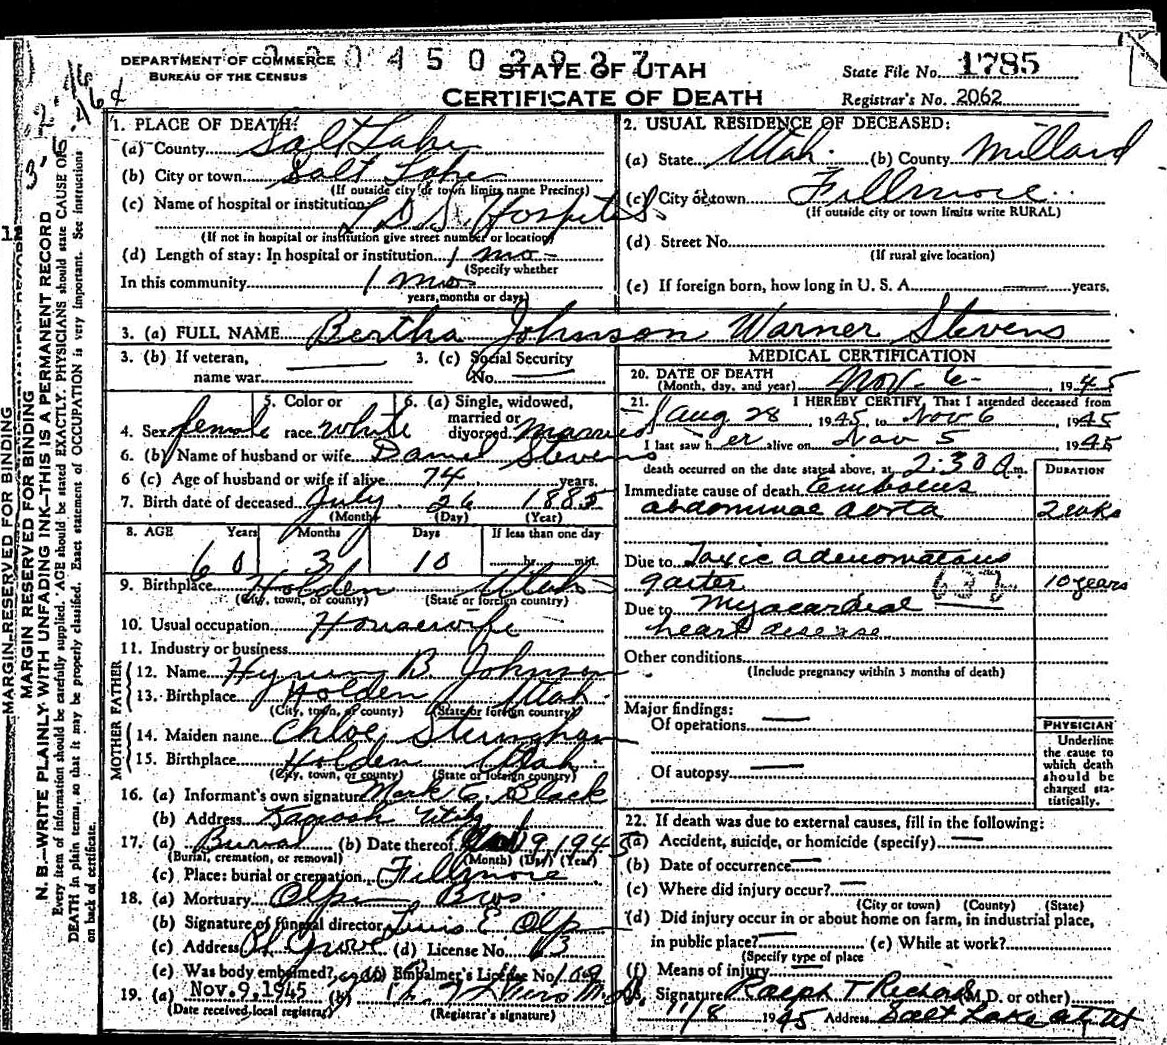 DEPARTMENT OF COMMERCE
BUREAU OF THE CENSUS
STATE OF UTAH
CERTIFICATE OF DEATH
State File No. 1785
Registrar's No. 2062
1. PLACE OF DEATH:
(a) County Salt Lake
(b) City or town Salt Lake
(If outside city or town limits name Precinct)
(c) Name of hospital or institution
L D S Hospital
(If not in hospital or institution give street number or location)
(d) Length of stay: In hospital or institution 1 mo-
(Specify whether
In this community 1 mo
years, months or days)
2. USUAL RESIDENCE OF DECEASED:
(a) State Utah (b) County Millard
(c) City or town Fillmore
(If outside city or town limits write RURAL)
(d) Street No.
(If rural give location)
(e) If foreign born, how long in U. S. A. years.
3. (a) FULL NAME Bertha Johnson Warner Stevens
3. (b) If veteran,
name war
3. (c) Social Security
No.
4. Sex female
5. Color or
race white
6. (a) Single, widowed,
married or
divorced married
6. (b) Name of husband or wife Daniel Stevens
6 (c) Age of husband or wife if alive 74 years.
7. Birth date of deceased July 26 1885
(Month) (Day) (Year)
8. AGE Years Months Days If less than one day
60 3 10 hr. min.
9. Birthplace Holden Utah
(City, town, or county) (State or foreign country)
10. Usual occupation Housewife
11. Industry or business
FATHER
12. Name Hyrum B. Johnson
13. Birthplace Holden Utah
(City, town, or county) (State or foreign country)
MOTHER
14. Maiden name Chloe
15. Birthplace Holden Utah
(City, town, or county) (State or foreign country)
16. (a) Informant's own signature Mark E. Black
(b) Address Kanosh Utah
17. (a) Burial (b) Date thereof 9 1945
(Burial, cremation, or removal) (Month) (Day) (Year)
(c) Place: burial or cremation Fillmore
18. (a) Mortuary Olpin Bros
(b) Signature of funeral director E Olpin
(c) Address Pl Grove (d) License No. 13
(e) Was body embalmed? yes (f) Embalmer's License No. 109
19. (a) Nov. 9, 1945 (b)
(Date received, local registrar) (Registrar's signature)
MEDICAL CERTIFICATION
20. DATE OF DEATH
(Month, day, and year) Nov- 6- , 1945
21. I HEREBY CERTIFY, That I attended deceased from
Aug 28 1945, to Nov 6 , 1945
I last saw her alive on Nov 5 1945
death occurred on the date stated above, at 2:30 a.m.
DURATION
Immediate cause of death embolus
abdominal aorta 2 wks
Due to Toxic adenomatous
goiter 10 years
Due to Myocardial
heart disease
Other conditions
(Include pregnancy within 3 months of death)
Major findings:
Of operations
Of autopsy
PHYSICIAN
Underline
the cause to
which death
should be
charged sta-
tistically.
22. If death was due to external causes, fill in the following:
(a) Accident, suicide, or homicide (specify)
(b) Date of occurrence
(c) Where did injury occur?
(City or town) (County) (State)
(d) Did injury occur in or about home on farm, in industrial place,
in public place? (e) While at work?
(Specify type of place
(f) Means of injury
Signature Ralph T Richards (M.D. or other)
11/8 1945 Address Salt Lake City Ut
MARGIN RESERVED FOR BINDING
MARGIN RESERVED FOR BINDING
N. B.—WRITE PLAINLY WITH UNFADING INK—THIS IS A PERMANENT RECORD
Every item of information should be carefully supplied. AGE should be stated EXACTLY. PHYSICIANS should state CAUSE OF
DEATH in plain terms, so that it may be properly classified. Exact statement of OCCUPATION is very important. See instructions
on back of certificate.